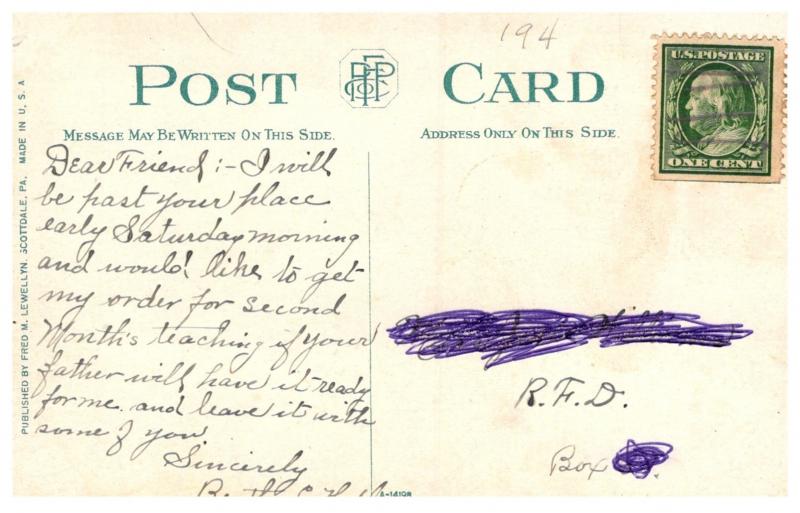 194
POST CARD
U.S. POSTAGE
ONE CENT
MESSAGE MAY BE WRITTEN ON THIS SIDE.
ADDRESS ONLY ON THIS SIDE.
PUBLISHED BY FRED M. LEWELLYN, SCOTTDALE, PA. MADE IN U.S.A
Dear Friend :- I will
be past your place
early Saturday morning
and would like to get
my order for second
Month's teaching if your
father will have it ready
for me. and leave it with
some of you
Sincerely
R.F.D.
Box
A-14198